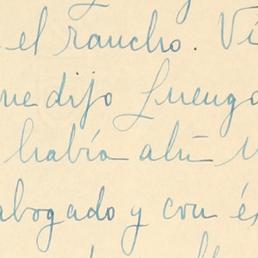 el rancho. Vi
me dijo Luengo
había ahí
abogado y con é